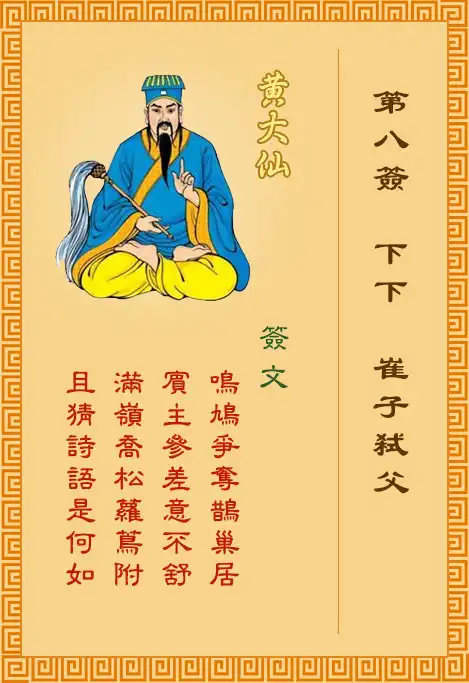 第八簽 下下 崔子弒父
黃大仙
簽文
鳴鳩爭奪鵲巢居
賓主參差意不舒
滿嶺喬松蘿蔦附
且猜詩語是何如